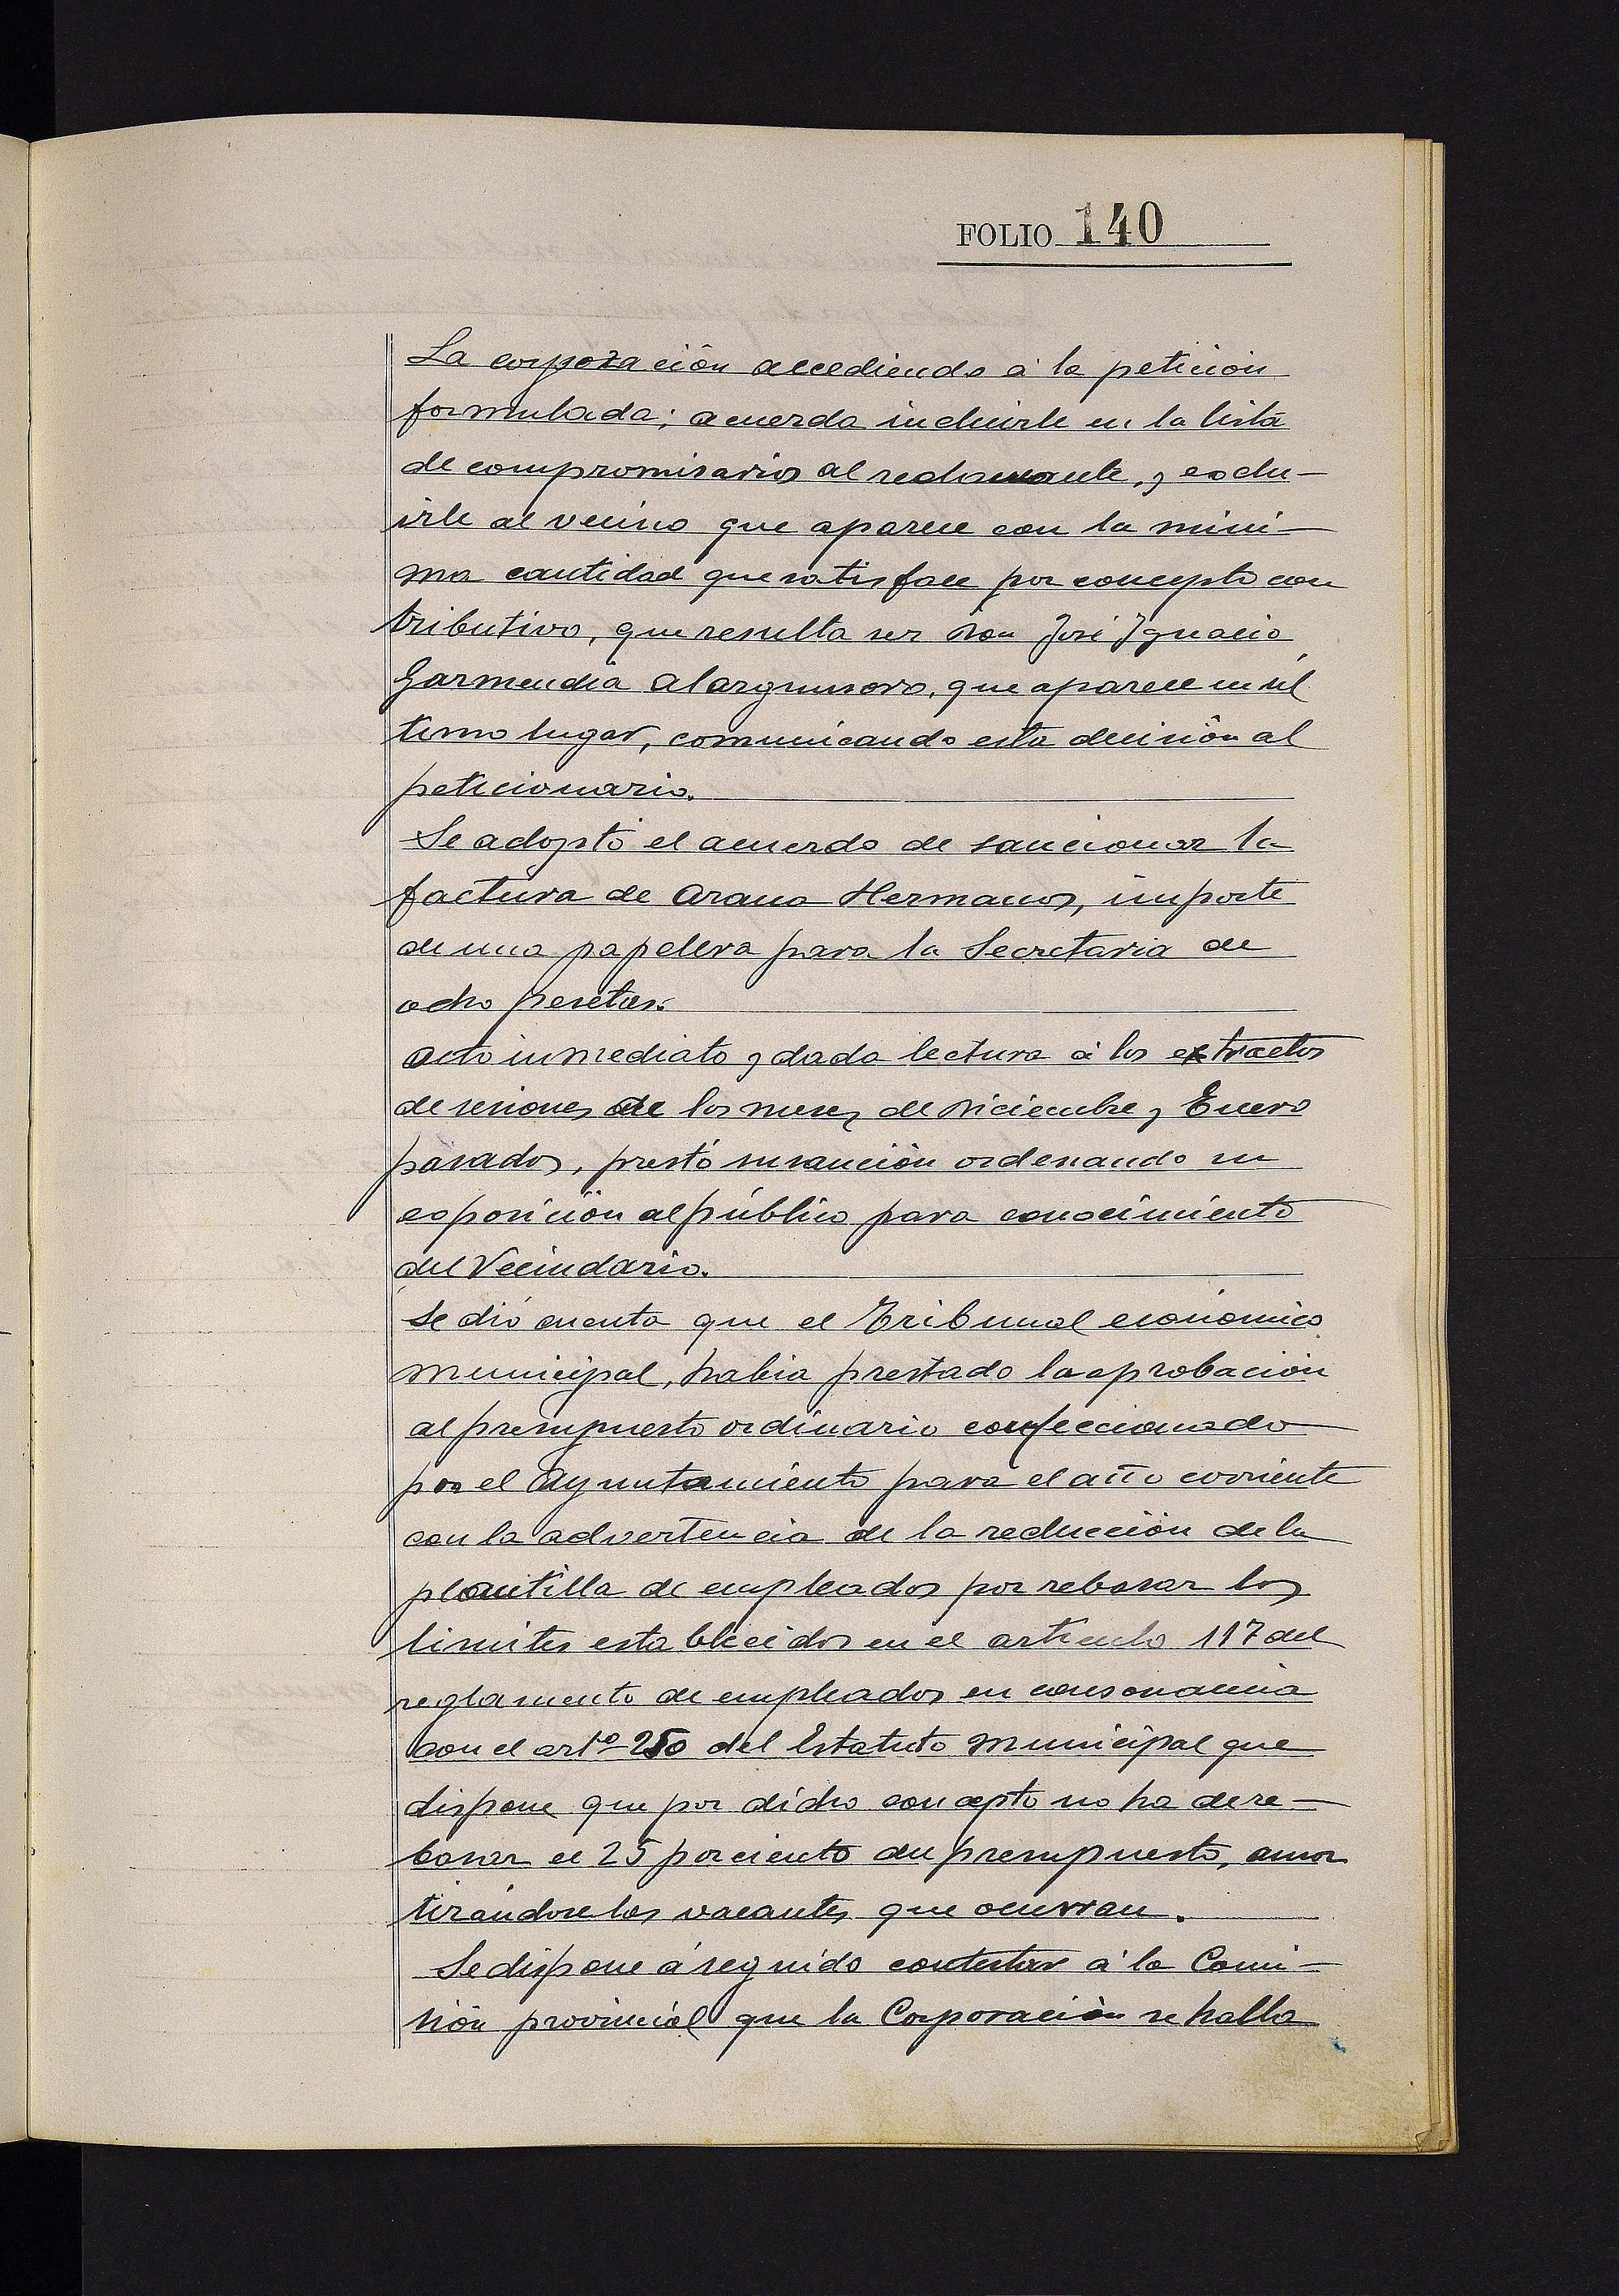 FOLIO 140
La corporación accediendo á la petición
formulada; acuerda incluirle en la lista
de compromisarios al reclamante, y esclu-
irle al vecino que aparece con la míni-
ma cantidad que satisface por concepto con
tributivo, que resulta ser Don José Ignacio
Garmendia que aparece en úl
timo lugar, comunicando esta decisión al
peticionario.
Se adoptó el acuerdo de sancionar la
factura de Arana Hermanos, importe
de una papelera para la Secretaria de
ocho pesetas.
Acto inmediato y dada lectura á los extractos
de sesiones de los meses de Diciembre y Enero
pasados, prestó su sanción ordenando su
esposición al público para conocimiento
del Vecindario.
Se dió cuenta que el Tribunal económico
municipal, habia prestado la aprobación
al presupuesto ordinario confeccionado
por el Ayuntamiento para el año corriente
con la advertencia de la reducción de la
plantilla de empleados por rebasar los
limites establecidos en el articulo 117 del
reglamento de empleados en consonancia
con el artº 250 del Estatuto Municipal que
dispone que por dicho concepto no ha de re-
basar el 25 por ciento del presupuesto, amor
tizándose las vacantes que ocurran.
Se dispone á seguido contestar á la Comi-
sión provincial que la Corporación se halla